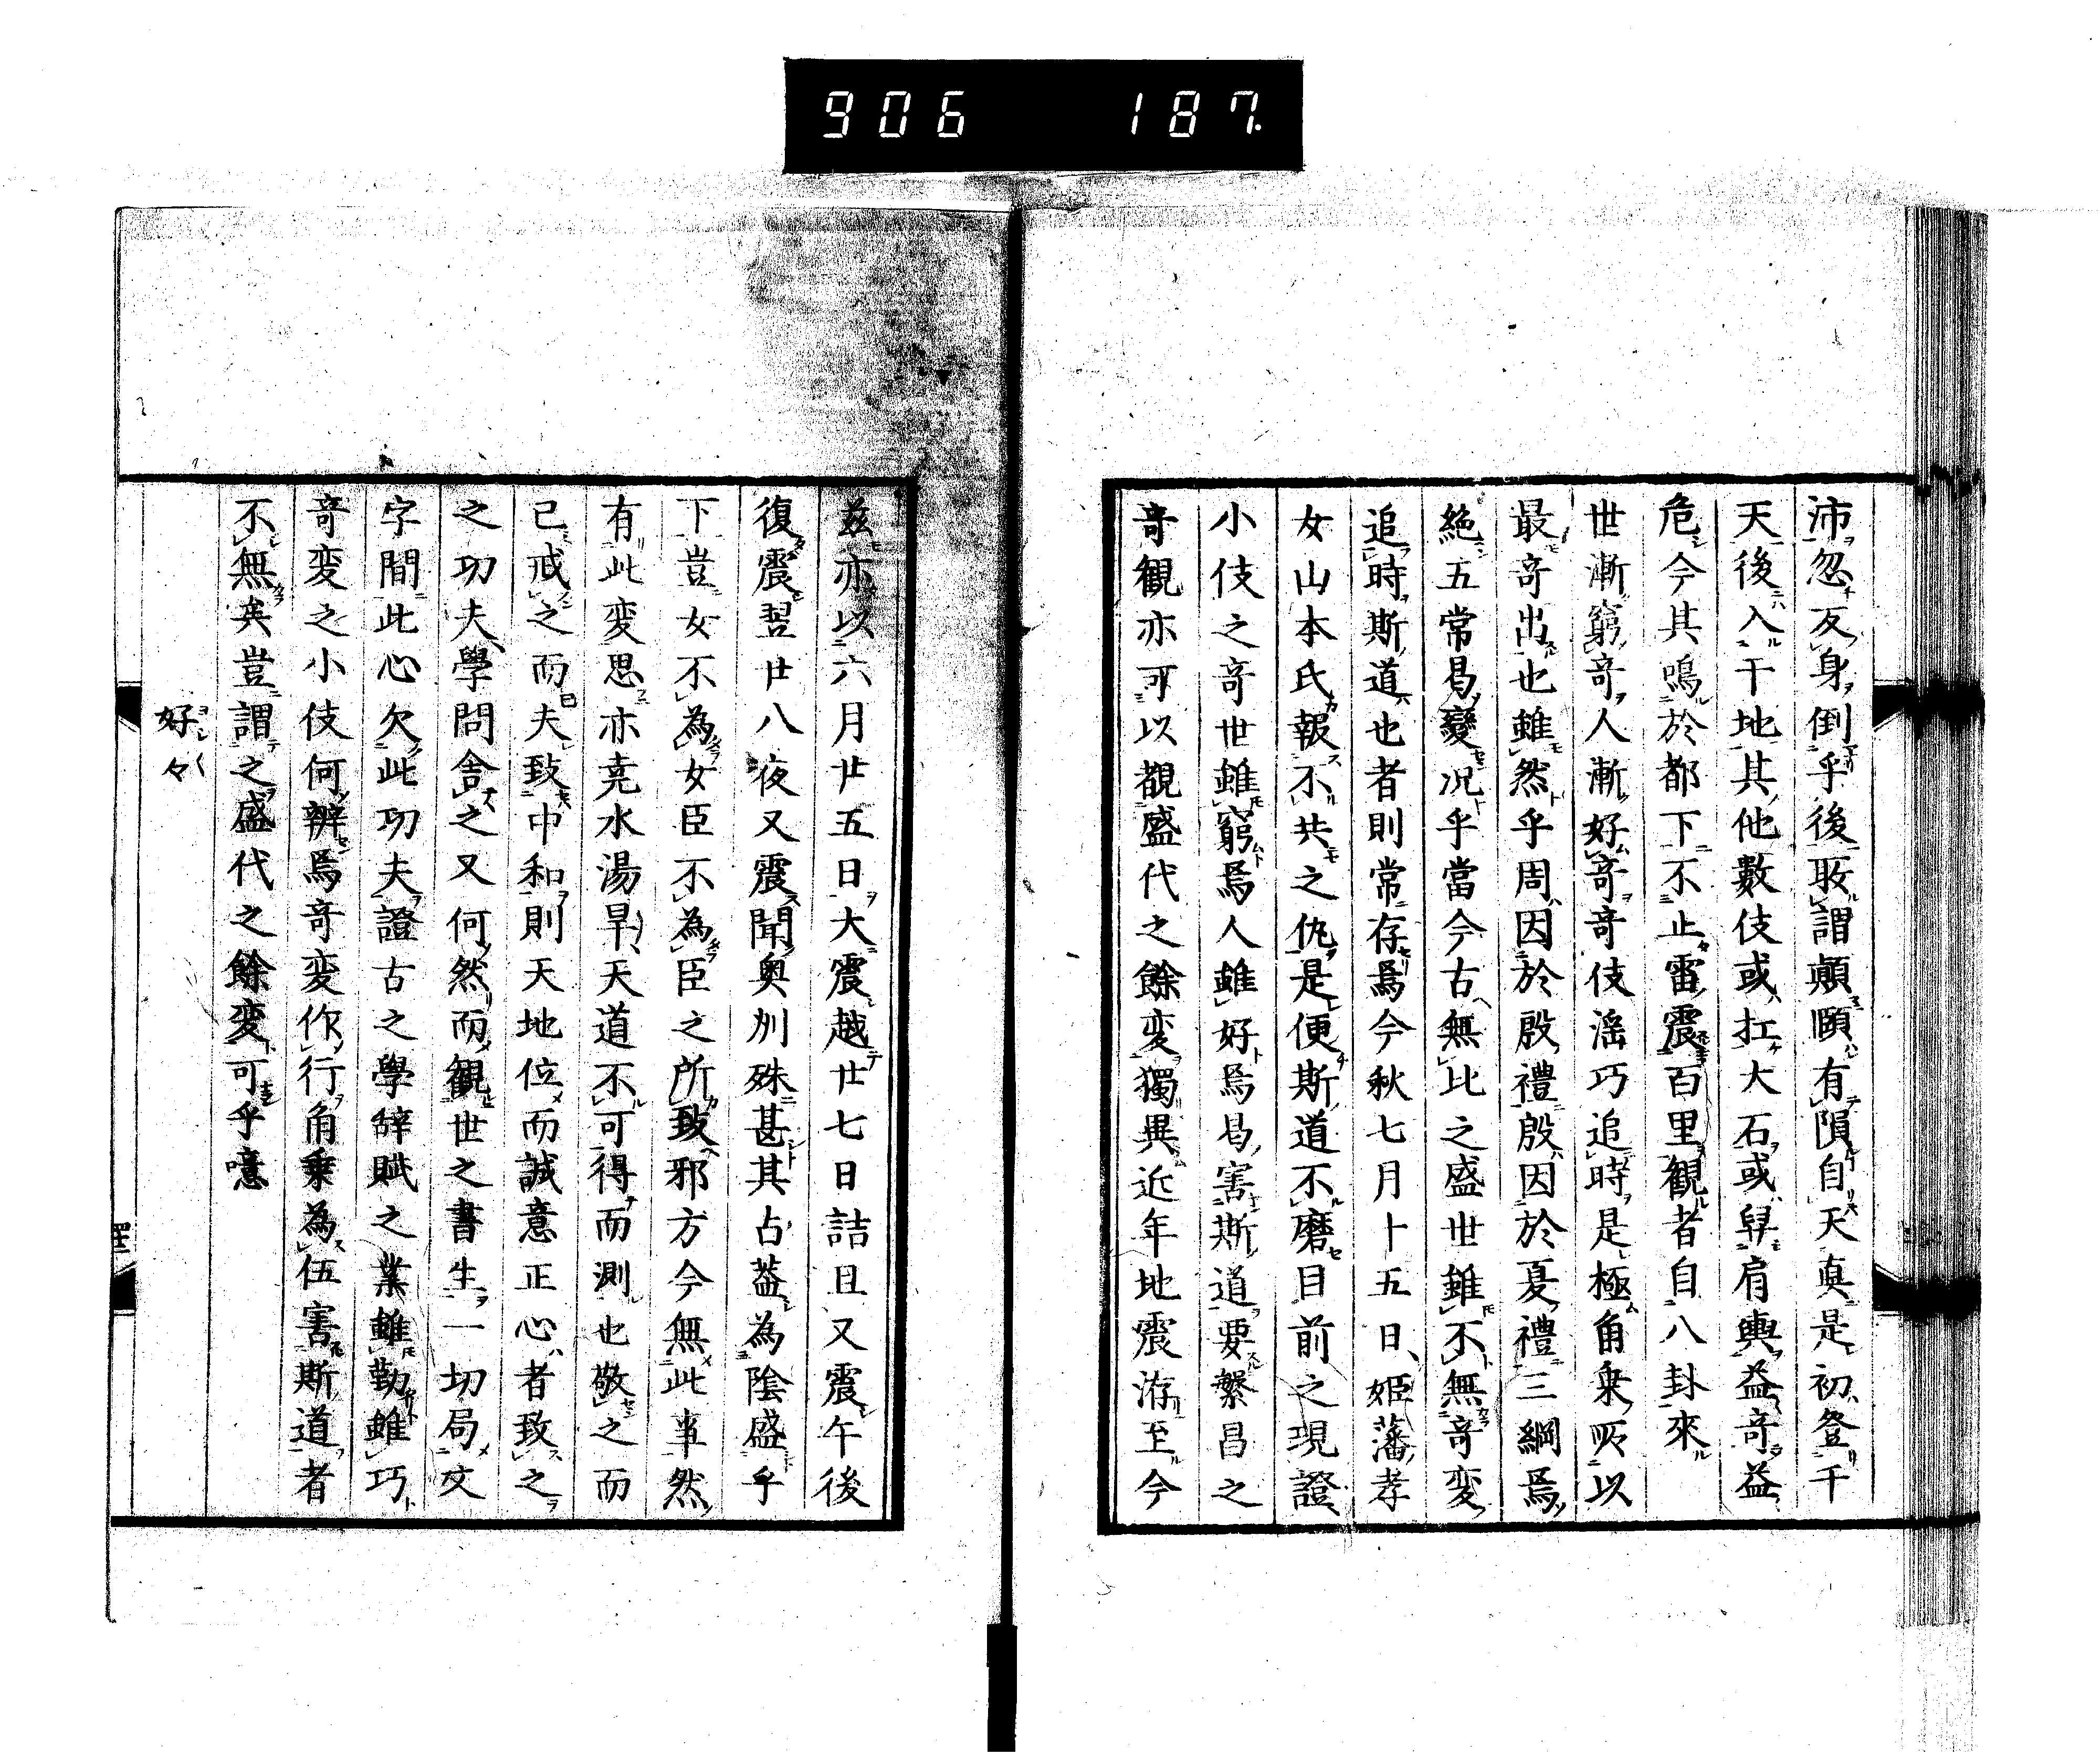 906 187.
沛忽反身倒乎後敢謂顛頤有隕自天真是初登于
天後入于地其他數伎或扛大石或舁肩輿益奇益
危今其鳴於都下不止雷震百里観者自八卦來
世漸窮奇人漸好奇奇伎滛巧追時是極角乗所以
最奇出也雖然乎周因於殷禮殷因於夏禮三綱焉
絶五常曷變况乎當今古無比之盛世雖不無奇変
追時斯道也者則常存焉今秋七月十五日姫藩孝
女山本氏報不共之仇是便斯道不磨目前之現證
小伎之奇世雖窮焉人雖好焉曷害斯道要繁昌之
奇観亦可以覩盛代之餘変獨異近年地震洊至今
茲亦以六月廿五日大震越廿七日詰旦又震午後
復震翌廿八夜又震聞奥州殊甚其占葢為陰盛乎
下豈女不為女臣不為臣之所致邪方今無此事然
有此変思亦堯水湯旱天道不可得而測也敬之而
已戒之而已夫致中和則天地位而誠意正心者致之
之功夫學問舎之又何然而観世之書生一切局文
字間此心欠此功夫證古之學辭賦之業雖勤雖巧
奇変之小伎何辨焉奇変作行角乗為伍害斯道者
不無矣豈謂之盛代之餘変可乎噫
好々